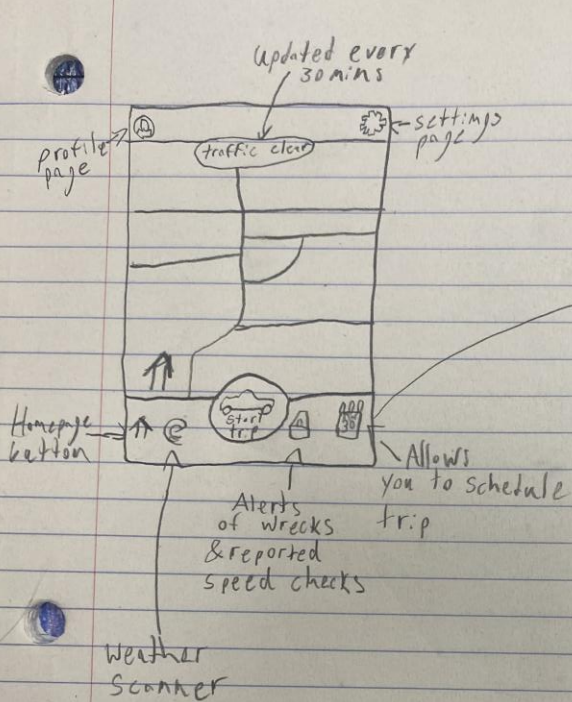 Updated every
30 mins
profile
page
settings
page
traffic clear
start
trip
Homepage
button
Allows
you to schedule
trip
Alerts
of wrecks
& reported
speed checks
Weather
scanner